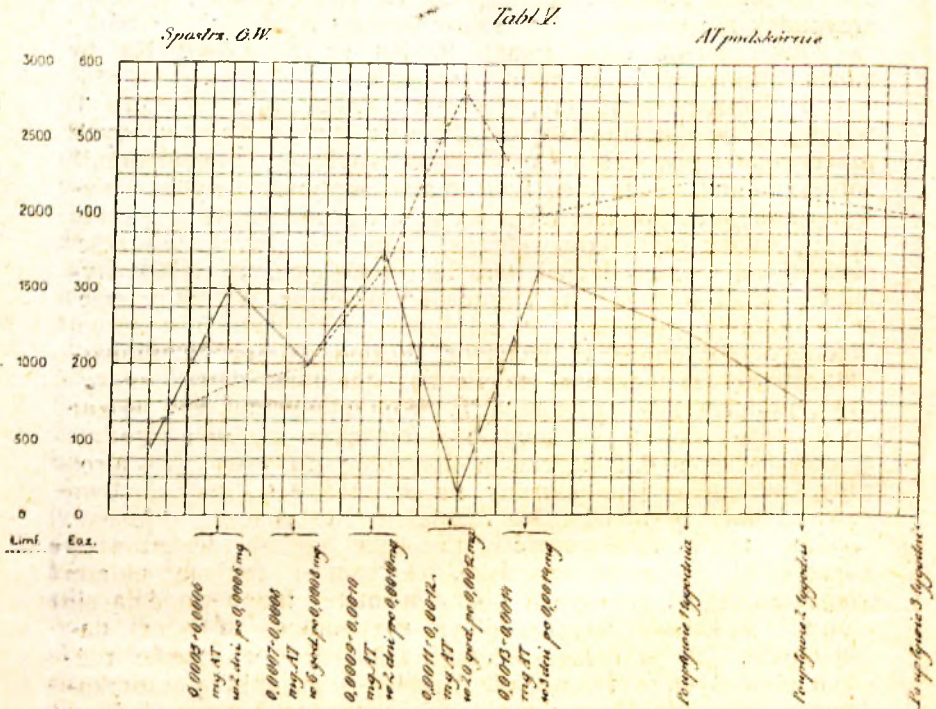 Tabl V.
Spostrz. G.W.
AT podskórnie
3000 600
2500 500
2000 400
1500 300
1000 200
500 100
0 0
Limf. Eoz.
0,0005 i 0,0006
mg AT
w 2 dni po 0,0006 mg
0,0007 i 0,0008
mg AT
w 6 god. po 0,0008 mg
0,0009 i 0,0010
mg AT
w 2 dni po 0,0010 mg
0,0011 i 0,0012
mg AT
w 20 god. po 0,0012 mg
0,0013 i 0,0014
mg AT
w 3 dni po 0,0014 mg
Po upływie 1 tygodnia
Po upływie 2 tygodni
Po upływie 3 tygodni